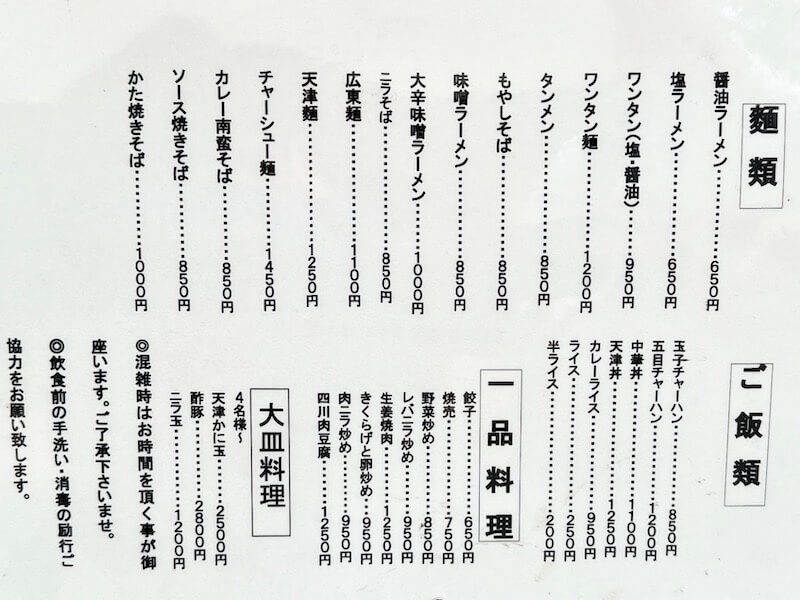 麺類
醤油ラーメン……………650円
塩ラーメン……………650円
ワンタン(塩・醤油)……950円
ワンタン麺……………1200円
タンメン……………850円
もやしそば……………850円
味噌ラーメン……………850円
大辛味噌ラーメン………1000円
ニラそば……………850円
広東麺……………1100円
天津麺……………1250円
チャーシュー麺………1450円
カレー南蛮そば………850円
ソース焼きそば………850円
かた焼きそば………1000円
ご飯類
玉子チャーハン………850円
五目チャーハン………1200円
中華丼……………1100円
天津丼……………1250円
カレーライス…………950円
ライス……………250円
半ライス……………200円
一品料理
餃子……………650円
焼売……………750円
野菜炒め……………850円
レバニラ炒め…………950円
生姜焼肉……………1250円
きくらげと卵炒め……950円
肉ニラ炒め……………950円
四川肉豆腐……………1250円
大皿料理
4名様~
天津かに玉…………2500円
酢豚……………2800円
ニラ玉……………1200円
◎混雑時はお時間を頂く事が御
座います。ご了承下さいませ。
◎飲食前の手洗い・消毒の励行ご
協力をお願い致します。